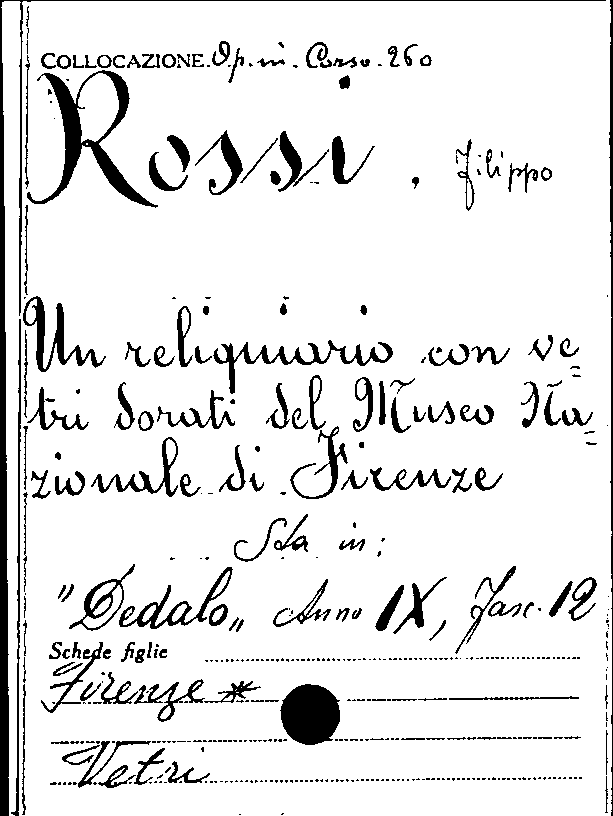 COLLOCAZIONE. Op. in. Corso. 260
Rossi. Filippo
Un reliquiario con ve=
tri dorati del Museo Na=
zionale di Firenze
Sta in:
"Dedalo„ Anno IX, Fasc. 12
Schede figlie
Firenze *
Vetri